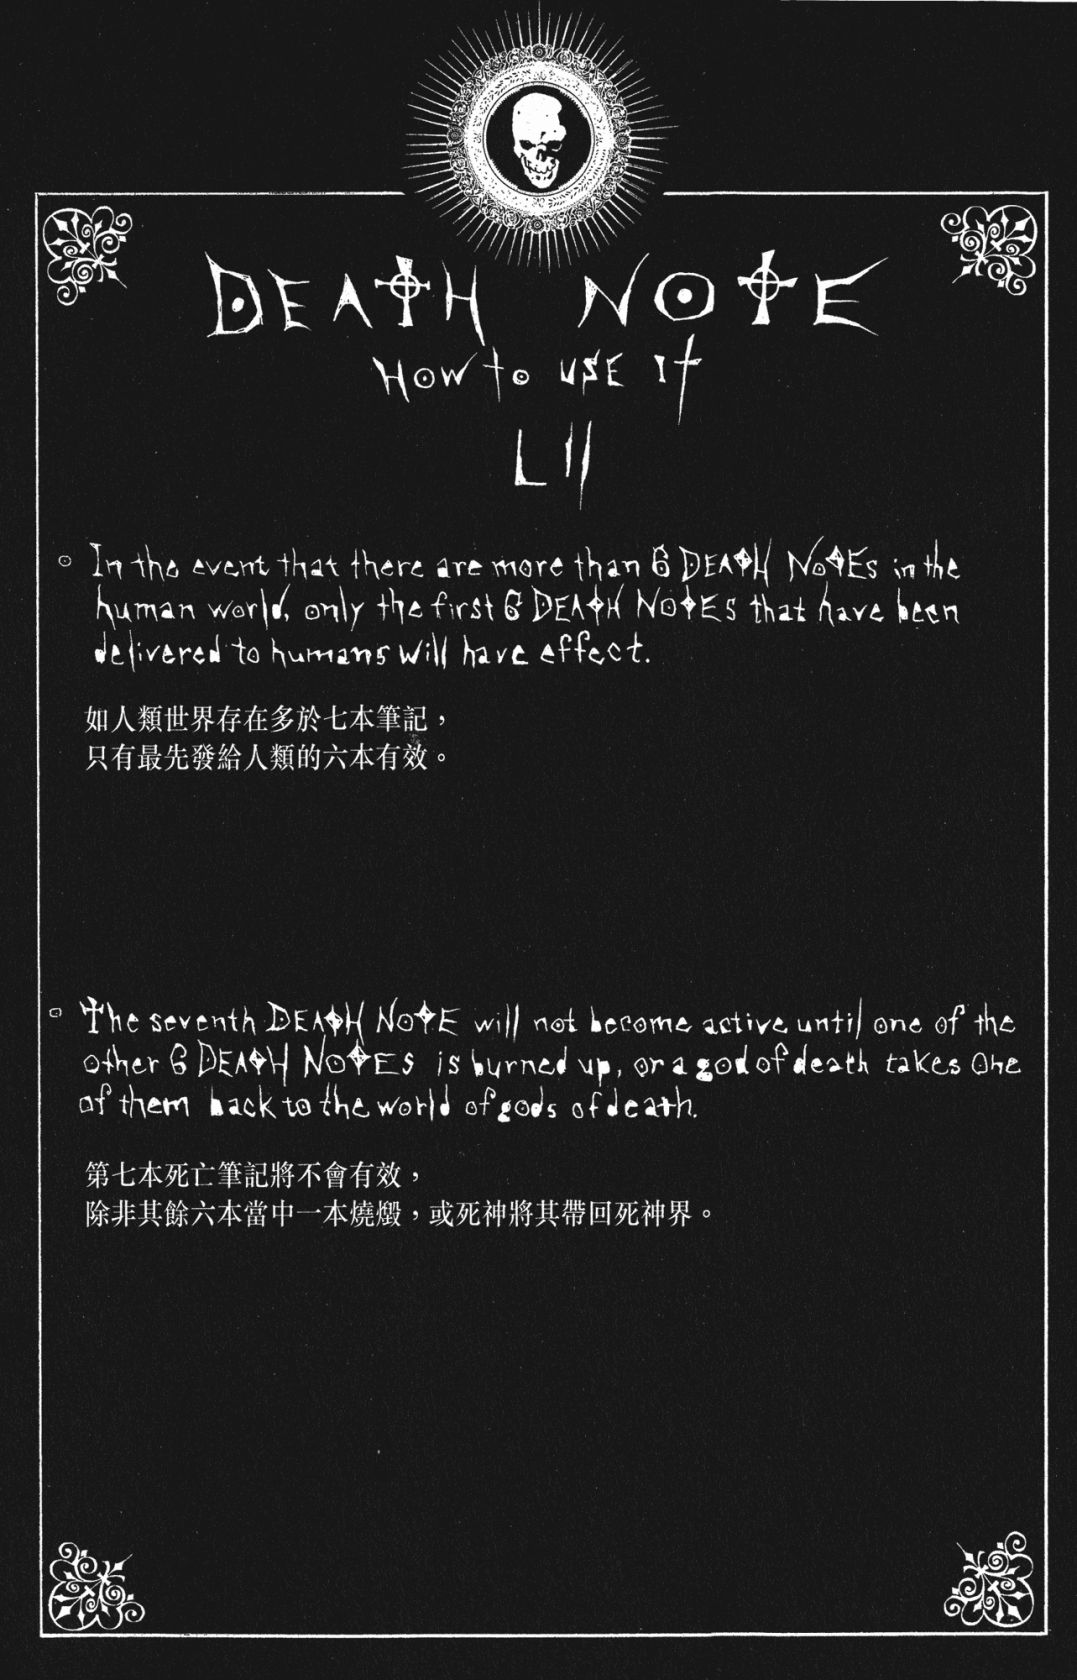 DEATH NOTE
How to use it
LII
In the event that there are more than 6 DEATH NOTEs in the
human world, only the first 6 DEATH NOTEs that have been
delivered to humans will have effect.
如人類世界存在多於七本筆記，
只有最先發給人類的六本有效。
The seventh DEATH NOTE will not become active until one of the
other 6 DEATH NOTES is burned up, or a god of death takes one
of them back to the world of gods of death.
第七本死亡筆記將不會有效，
除非其餘六本當中一本燒燬，或死神將其帶回死神界。